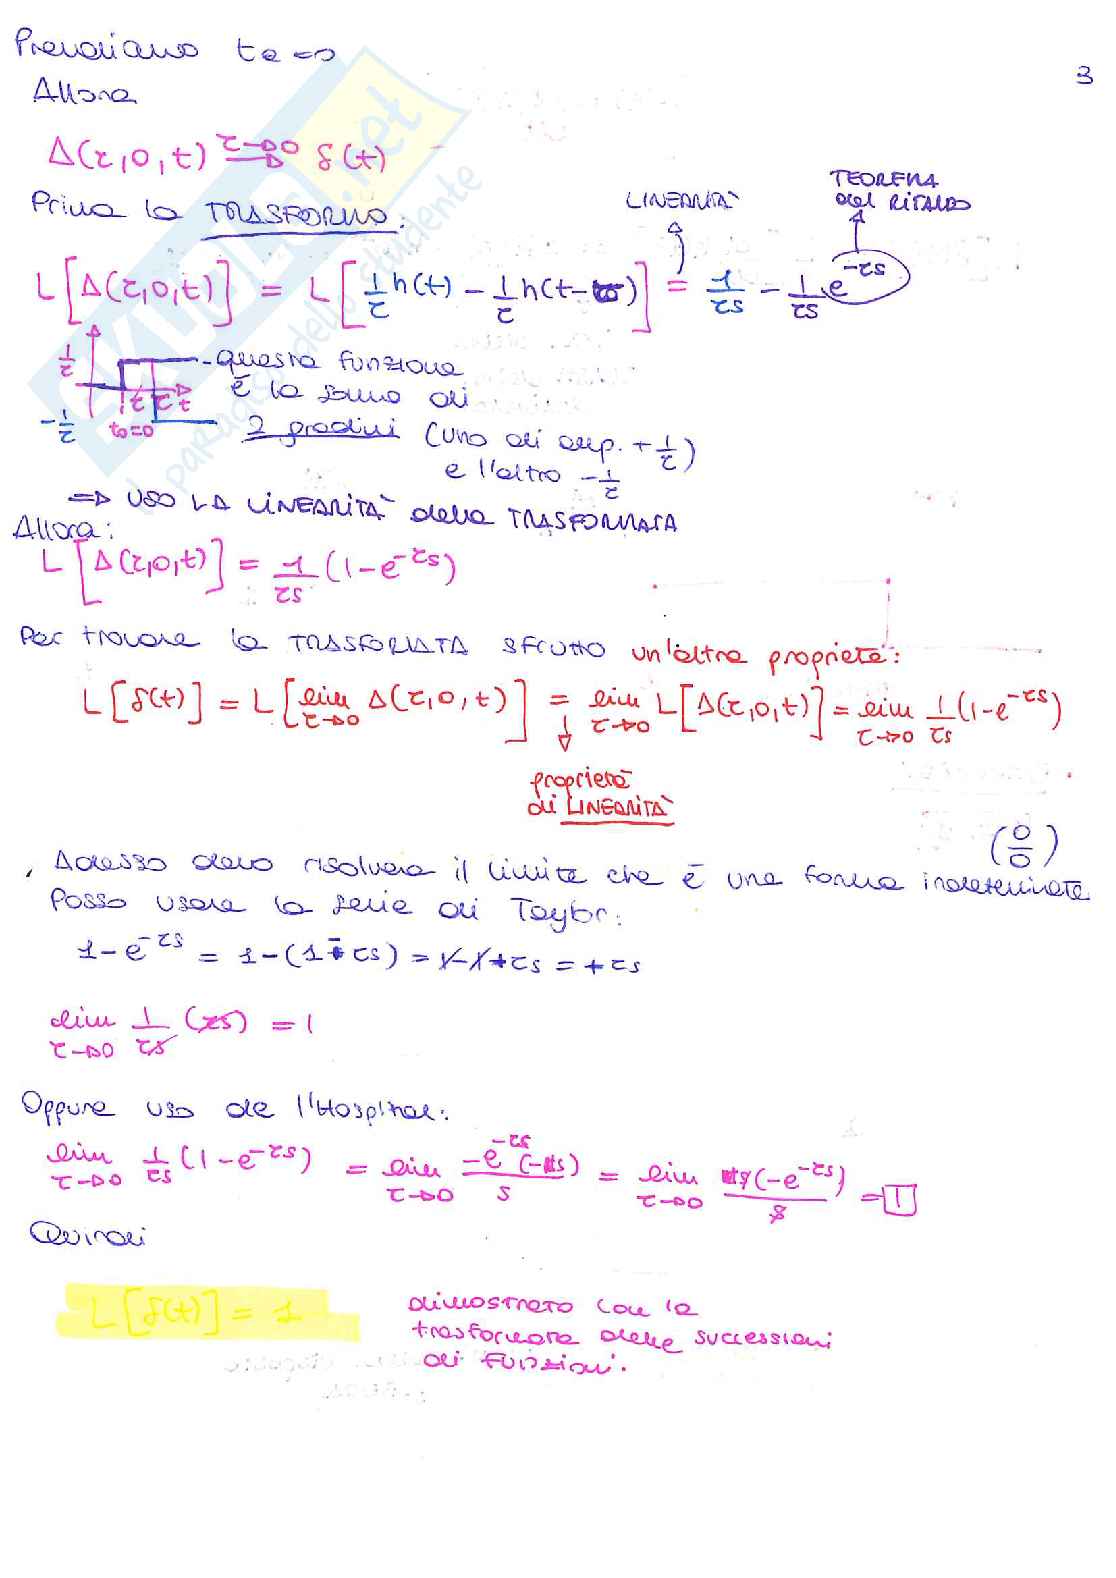 Prendiamo to=0
3
Allora
Δ(τ,0,t) τ→0 ⟹ δ(t)
Prima la TRASFORMO:
LINEARITÀ
TEOREMA del RITARDO
L[Δ(τ,0,t)] = L[1/τ h(t) - 1/τ h(t-τ)] = 1/τs - 1/τs e^-τs
1/τ
-1/τ
t τ t
to=0
- questa funzione
è la somma di
2 gradini (uno di amp. + 1/τ)
e l'altro - 1/τ
⇒ USO LA LINEARITÀ della TRASFORMATA
Allora:
L[Δ(τ,0,t)] = 1/τs (1-e^-τs)
Per trovare la TRASFORMATA sfrutto un'altra proprietà:
L[δ(t)] = L[lim τ→0 Δ(τ,0,t)] = lim τ→0 L[Δ(τ,0,t)] = lim τ→0 1/τs (1-e^-τs)
proprietà
di LINEARITÀ
(0/0)
Adesso devo risolvere il limite che è una forma indeterminata
Posso usare la serie di Taylor:
1-e^-τs = 1-(1-τs) = 1-1+τs = +τs
lim τ→0 1/τs (τs) = 1
Oppure uso de l'Hospital:
lim τ→0 1/τs (1-e^-τs) = lim τ→0 -e^-τs(-s)/s = lim τ→0 s(-e^-τs)/s = 1
Quindi
L[δ(t)] = 1
dimostrato con la
trasformata delle successioni
di funzioni.
SKUOLA.net
il paradiso dello studente